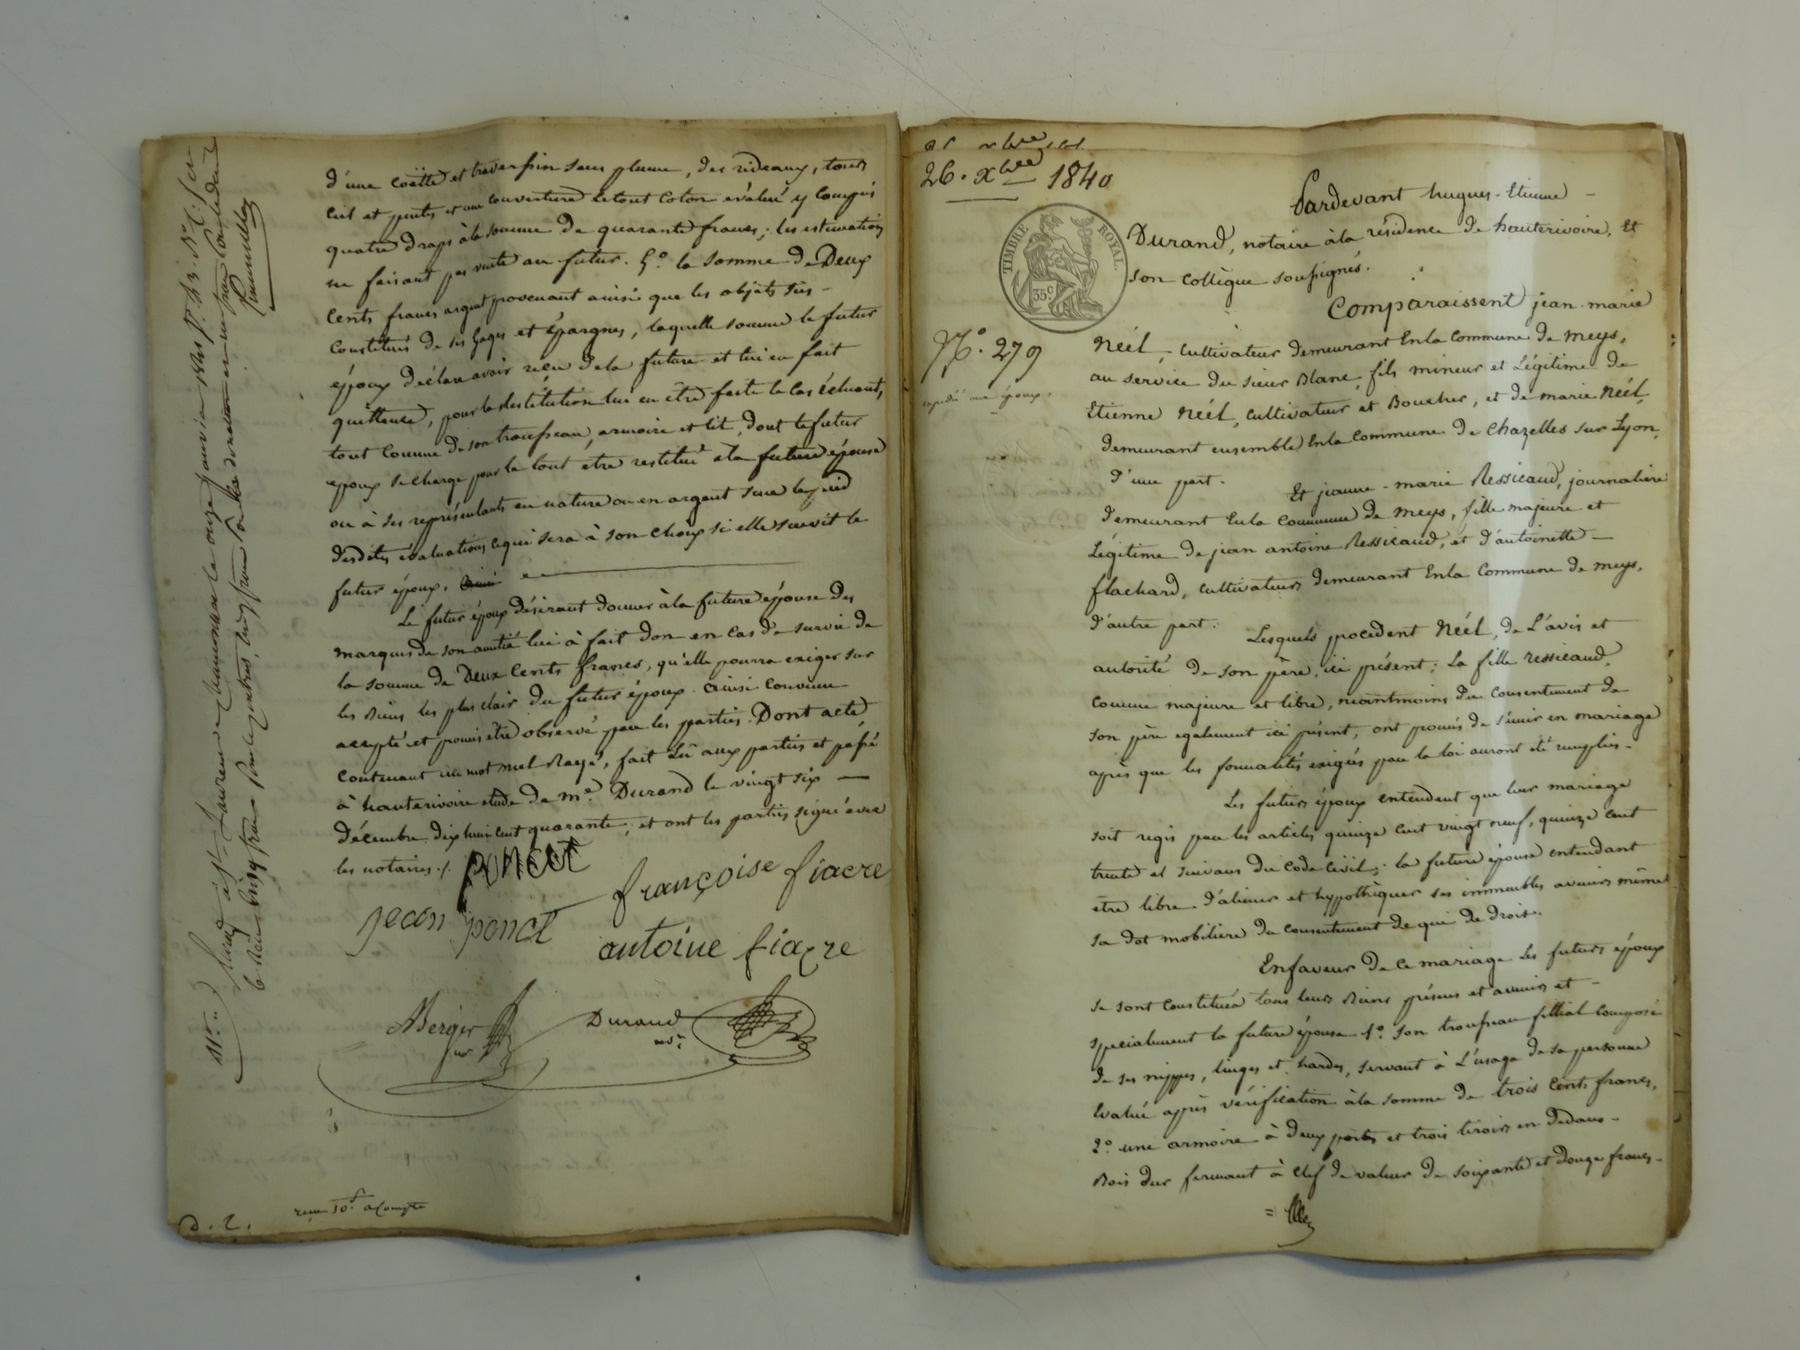 d'une coëtte et traverssin sans plume, des rideaux, tours
ciel et pentes et une couverture le tout coton évalué y compris
quatre draps à la somme de quarante francs; les estimations
ne faisant pas vente au futur. 5° la somme de Deux
Cents francs argent provenant ainsi que les objets sus-
constitués de ses gages et épargnes, laquelle somme le futur
époux déclare avoir reçu de la future et lui en fait
quittance, pour la restitution lui en être faite le cas échéant,
tout comme de son trousseau, armoire et lit, dont le futur
époux se charge pour le tout etre restitué à la future épouse
ou à ses représentants en nature ou en argent sur le pied
desdites évaluations ce qui sera à son choix si elle survit le
futur époux.
Le futur époux désirant donner à la future épouse des
marques de son amitié lui à fait don en cas de survie de
la somme de Deux Cents francs, qu'elle pourra exiger sur
les Biens les plus clair du futur époux. ainsi convenu
accepté et promis être observé par les parties. Dont acte
contenant un mot nul Rayé, fait Lû aux parties et passé
à hauterivoire étude de me. Durand le vingt six
décembre dix huit cent quarante, et ont les parties signé avec
les notaires ./.
poncet
françoise fiacre
jean poncet
antoine fiacre
Berger
nre
Durand
not.re
reçu 10f. acompte
D. 2.
26. xbre 1840
TIMBRE ROYAL.
35c
N°. 279
Pardevant hugues-Etienne
Durand, notaire à la résidence de hauterivoire, Et
son collègue soussignés.
Comparaissent jean-marie
Néél, cultivateur demeurant En la Commune de meys,
au service du sieur Blanc, fils mineur et Légitime de
Etienne Néél, cultivateur et Boucher, et de marie Néél,
demeurant ensemble En la Commune de Chazelles sur Lyon,
d'une part.
Et jeanne-marie Ressicaud, journalière
demeurant En la Commune de meys, fille majeure et
Légitime de jean antoine Ressicaud, et d'antoinette
flachard, cultivateurs demeurant En la Commune de meys.
d'autre part.
Lesquels procedent Néél, de L'avis et
autorité de son père, ici présent; la fille ressicaud,
comme majeure et libre, néantmoins du consentement de
son père egalement ici présent, ont promis de s'unir en mariage
après que les formalités éxigés par la loi auront été remplies.
Les futurs époux entendent que leur mariage
soit regis par les articles quinze cent vingt neuf, quinze cent
trente et suivans du Code Civil; la future épouse entendant
être libre d'aliener et hypothéquer ses immeubles avenirs même
sa dot mobiliere du consentement de qui de droit.
En faveur de ce mariage Les futurs époux
se sont constitués tous leurs Biens présens et avenirs et
spécialement la future épouse 1°. son trousseau fillial composé
de ses nippes, linges et hardes, servant à L'usage de sa personne
Evalué après vérification à la somme de trois Cents francs,
2°. une armoire à deux portes et trois tiroirs en Dedans
Bois dur fermant à clef de valeur de soixante et douze francs